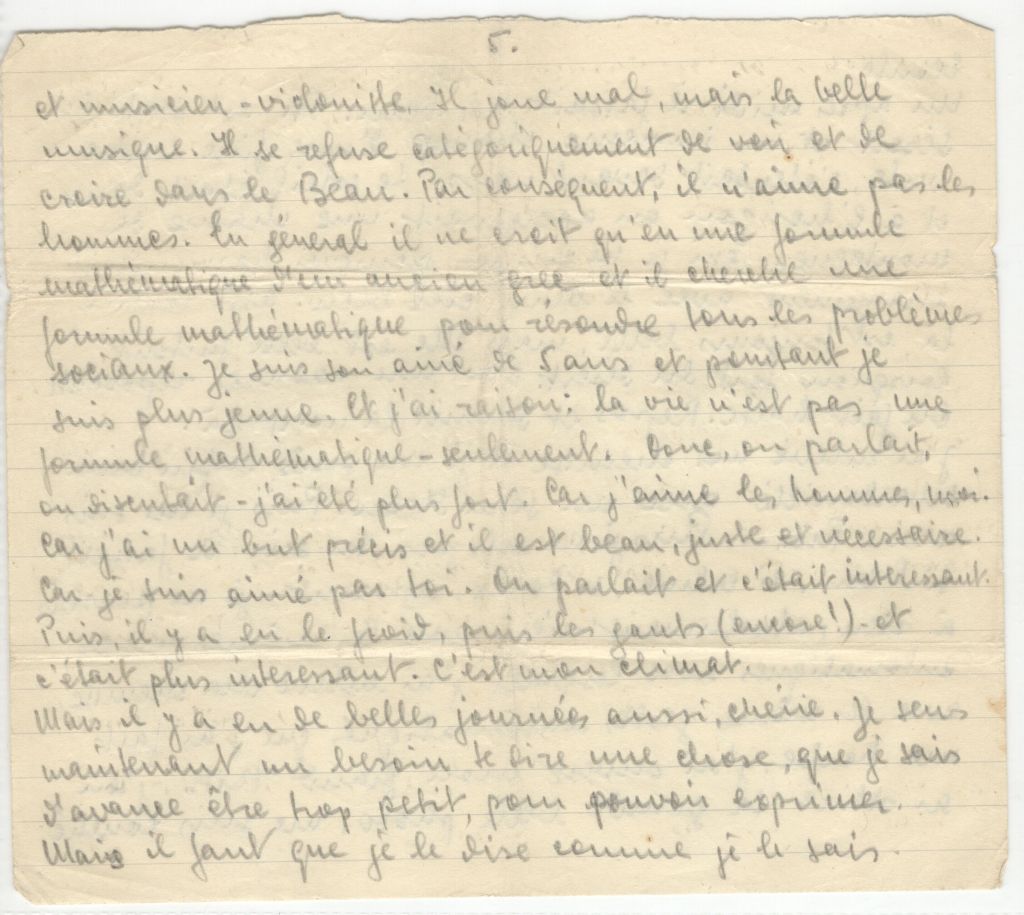 5.
et musicien - violoniste. Il joue mal, mais la belle
musique. Il se refuse catégoriquement de voir et de
croire dans le Beau. Par conséquent, il n'aime pas les
hommes. En géneral il ne croit qu'en une formule
mathématique d'un ancien grec et il cherche une
formule mathématique pour résoudre tous les problèmes
sociaux. Je suis son ainé de 5 ans et pourtant je
suis plus jeune. Et j'ai raison: la vie n'est pas une
formule mathématique - seulement. Donc, on parlait,
on discutait - j'ai été plus fort. Car j'aime les hommes, moi.
Car j'ai un but précis et il est beau, juste et nécessaire.
Car je suis aimé par toi. On parlait et c'était interessant.
Puis, il y a eu le froid, puis les gants (encore!) - et
c'était plus interessant. C'est mon climat.
Mais il y a eu de belles journées aussi, chérie. Je sens
maintenant un besoin te dire une chose, que je sais
d'avance être trop petit, pour pouvoir exprimer.
Mais il faut que je le dise comme je le sais.